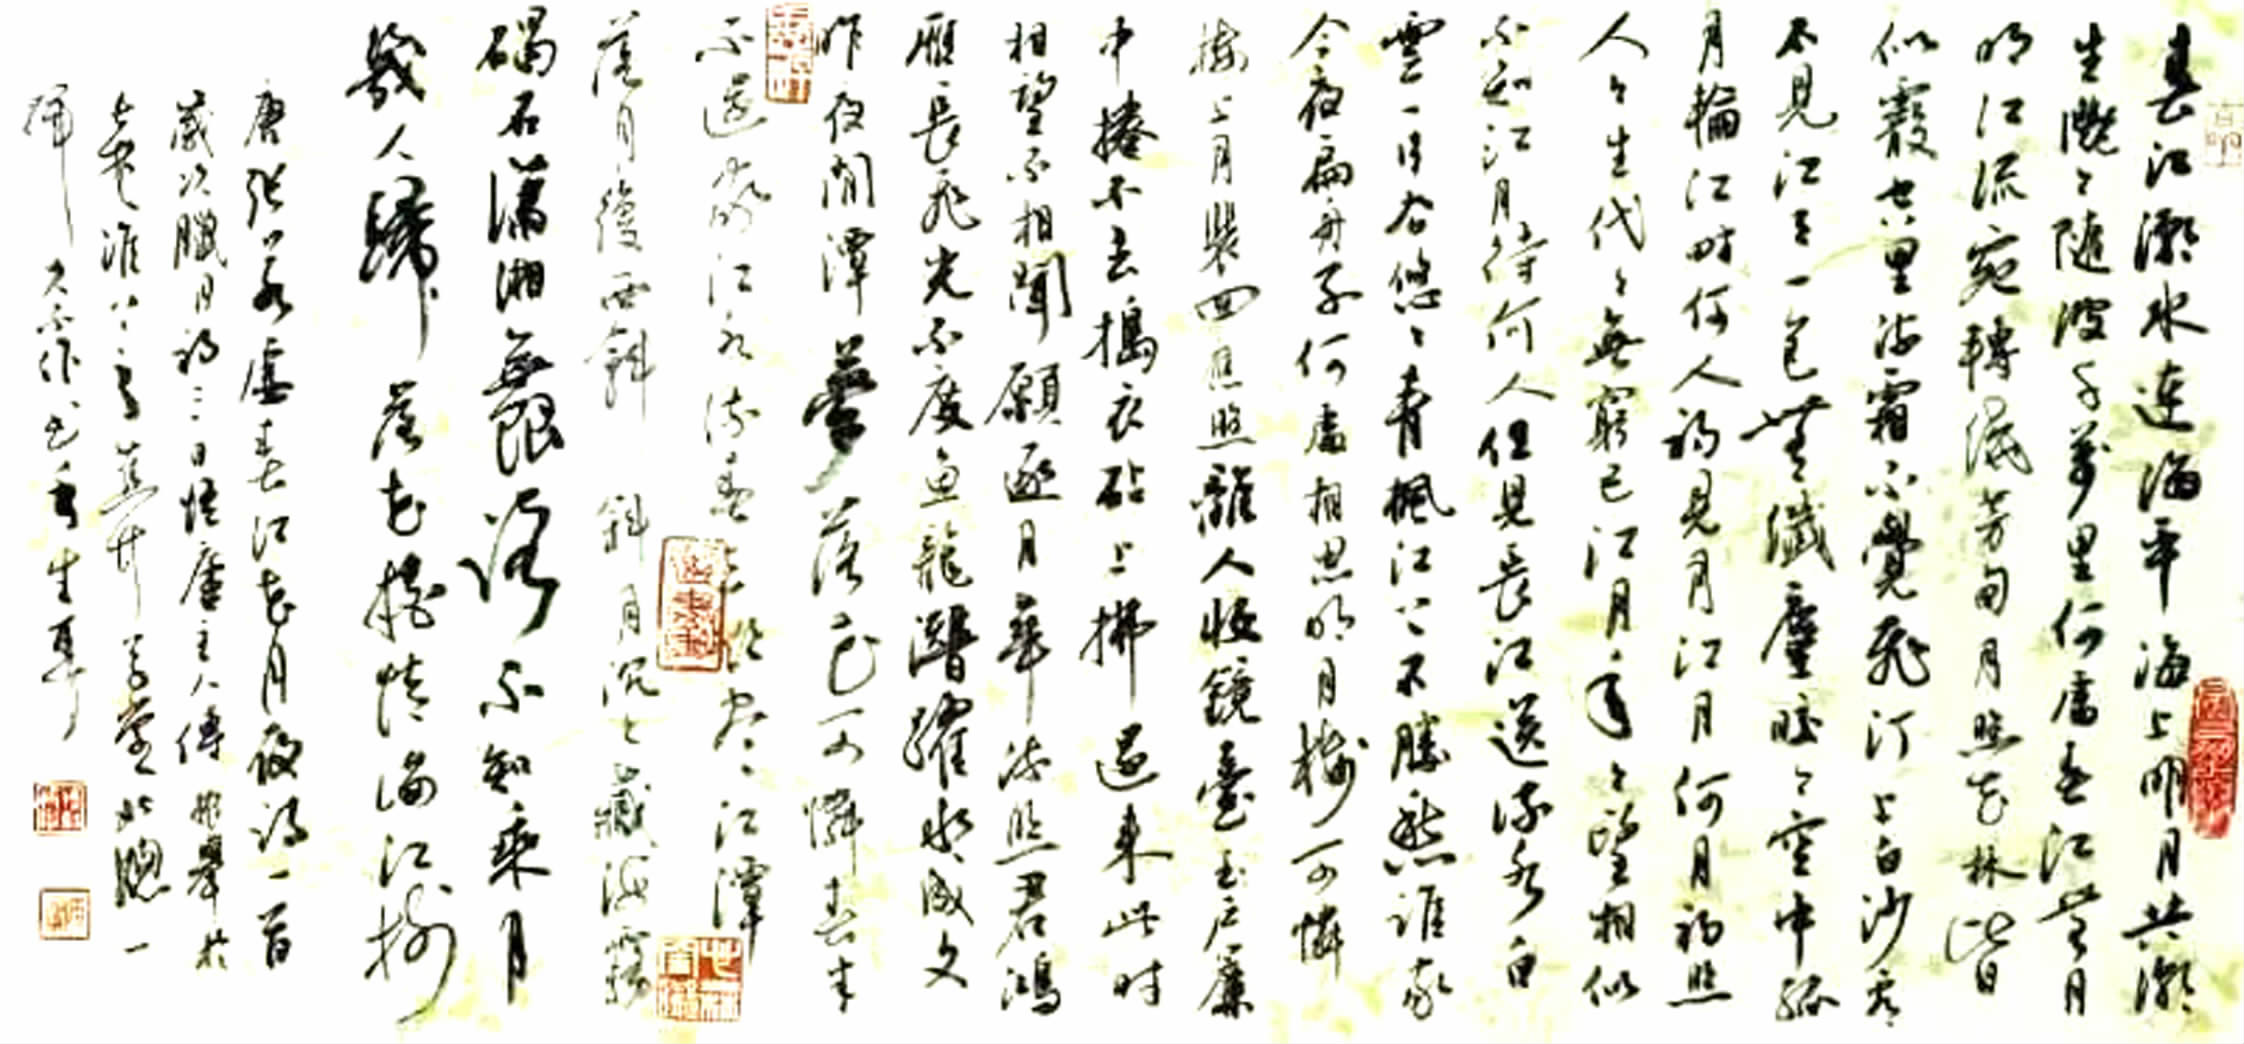 春江潮水連海平海上明月共潮
生灩々隨波千萬里何處春江無月
明江流宛轉繞芳甸月照花林皆
似霰空里流霜不覺飛汀上白沙看
不見江天一色無纖塵皎々空中孤
月輪江畔何人初見月江月何月初照
人々生代々無窮已江月年々望相似
不知江月待何人但見長江送流水白
雲一片去悠々青楓江上不勝愁誰家
今夜扁舟子何處相思明月樓可憐
樓上月裴回應照離人妝鏡臺玉戶簾
中捲不去搗衣砧上拂還來此時
相望不相聞願逐月華流照君鴻
雁長飛光不度魚龍潛躍水成文
昨夜閒潭夢落花可憐春半
不還家江水流春去欲盡江潭
落月復西斜斜月沉々藏海霧
碣石瀟湘無限路不知乘月
幾人歸落花搖情滿江樹
唐張若虛春江花月夜詩一首
歲次臘月初三日悟廬主人傅 舉於
草堂 一
揮 久不作書手生耳